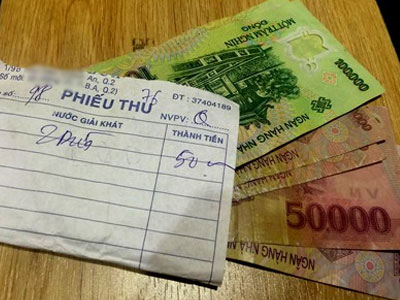 1/9B
Số mới
An, Q.2
B.A, Q.2)
số: 98 76 ĐT : 37404189
PHIẾU THU
NVPV:
NƯỚC GIẢI KHÁT THÀNH TIỀN
2 Dừa 50
MỘT TRĂM NGHÌN
ĐỒNG
100000
NGÂN HÀNG NHÀ
NGÂN HÀNG NHÀ
VN
50000
NGÂN HÀNG NHÀ NƯỚC